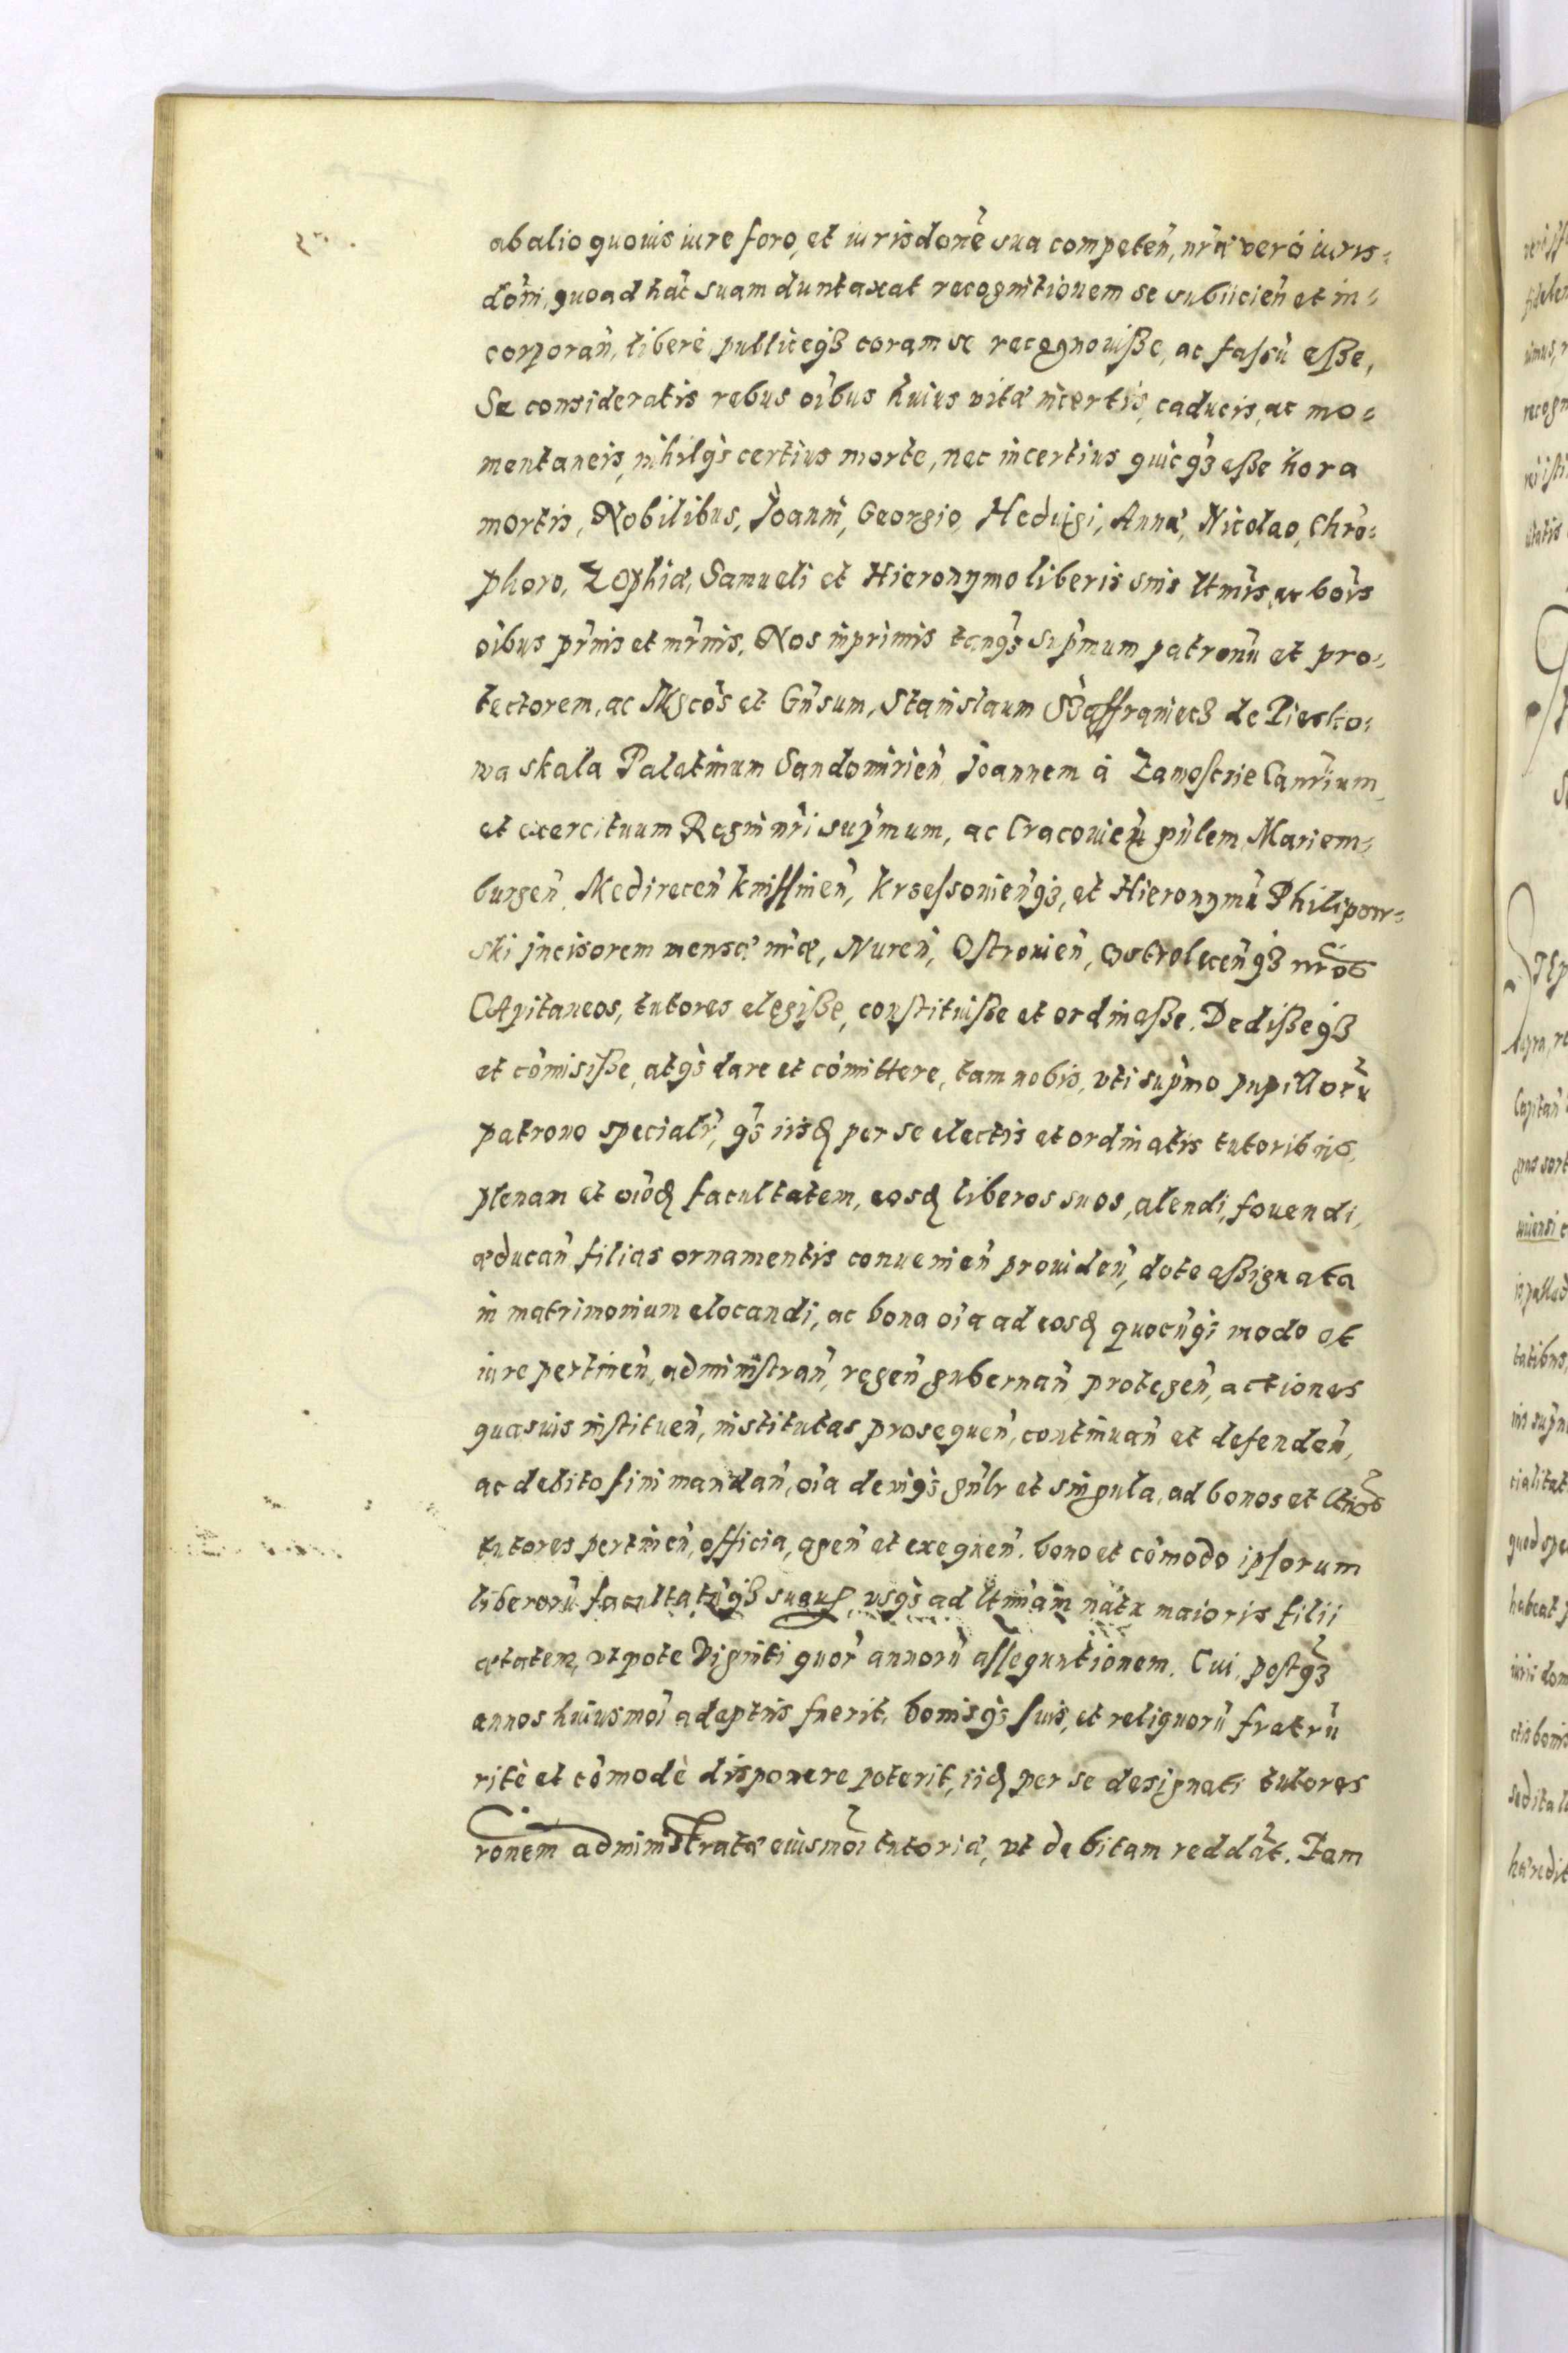 ab alio quouis iure foro, et iurisdonẽ sua competeñ, nrã verò iuris=
dõni, quoad hãc suam duntaxat recognitionem se subiicieñ et in=
corporañ, liberè publiceqȝ coram se recognouiſse, ac faſsũ eſse,
Se consideratis rebus oĩbus huius vitæ incertis, caducis, ac mo=
mentaneis, nihilqȝ certius morte, nec incertius quicqȝ eſse hora
mortis, Nobilibus, Joanni, Georgio, Heduigi, Annæ, Nicolao, Chrõ=
phoro, Zophiæ, Samueli et Hieronymo liberis suis ltmĩs, ac boĩs
oĩbus pr̃nis et mr̃nis, Nos inprimis tanqȝ sup̃mum patronũ et pro=
tectorem, ac Mgcos et Gñsum, Stanislaum Szaffraniecz de Piesko=
wa skala Palatinum Sandomirieñ Joannem à Zamoſcie Canr̃ium
et exercituum Regni nr̃i sup̃mum, ac Cracouieñ gñlem, Mariem=
burgeñ Medireceñ kniſſineñ, krzeſsouieñqȝ, et Hieronymũ Philipow=
ski incisorem mensæ nr̃æ, Nureñ, Oſtrouieñ, Ostroleceñqȝ nr̃os
CApitaneos, tutores elegiſse, conſtituiſse et ordinaſse. Dediſseqȝ
et cõmisiſse, atqȝ dare et cõmittere, tam nobis, vti sup̃mo pupillorũ
patrono specialr̃, qȝ iisđ per se electis et ordinatis tutoribus,
plenam et oĩođ facultatem, eosđ liberos suos, alendi, fouendi,
æducañ filias ornamentis conuenieñ prouideñ, dote aſsignata
in matrimonium elocandi, ac bona oĩa ad eosđ quocũqȝ modo et
iure pertineñ, adminiſtrañ, regeñ gubernañ protegeñ, actiones
quasuis inſtitueñ, institutas prosequeñ, continuañ et defendeñ,
ac debito fini mandañ, oĩa deniqȝ gñlr et singula, ad bonos et ltmos
tutores pertineñ, officia, ageñ et exequeñ. bono et cõmodo ipſorum
liberorũ facultatũqȝ suaꝝ, vsqȝ ad ltmãm natu maioris filii
ætatem, vtpote Viginti quor̃ annorũ aſſequutionem. Cui, poſtqȝ
annos huiusmoĩ adeptus fuerit, bonisqȝ ſuis, et reliquorũ fratrũ
ritè et cõmodè disponere poterit, iiđ per se designati tutores
ronem administratæ eiusmoĩ tutoriæ, vt debitam reddãt. Tam